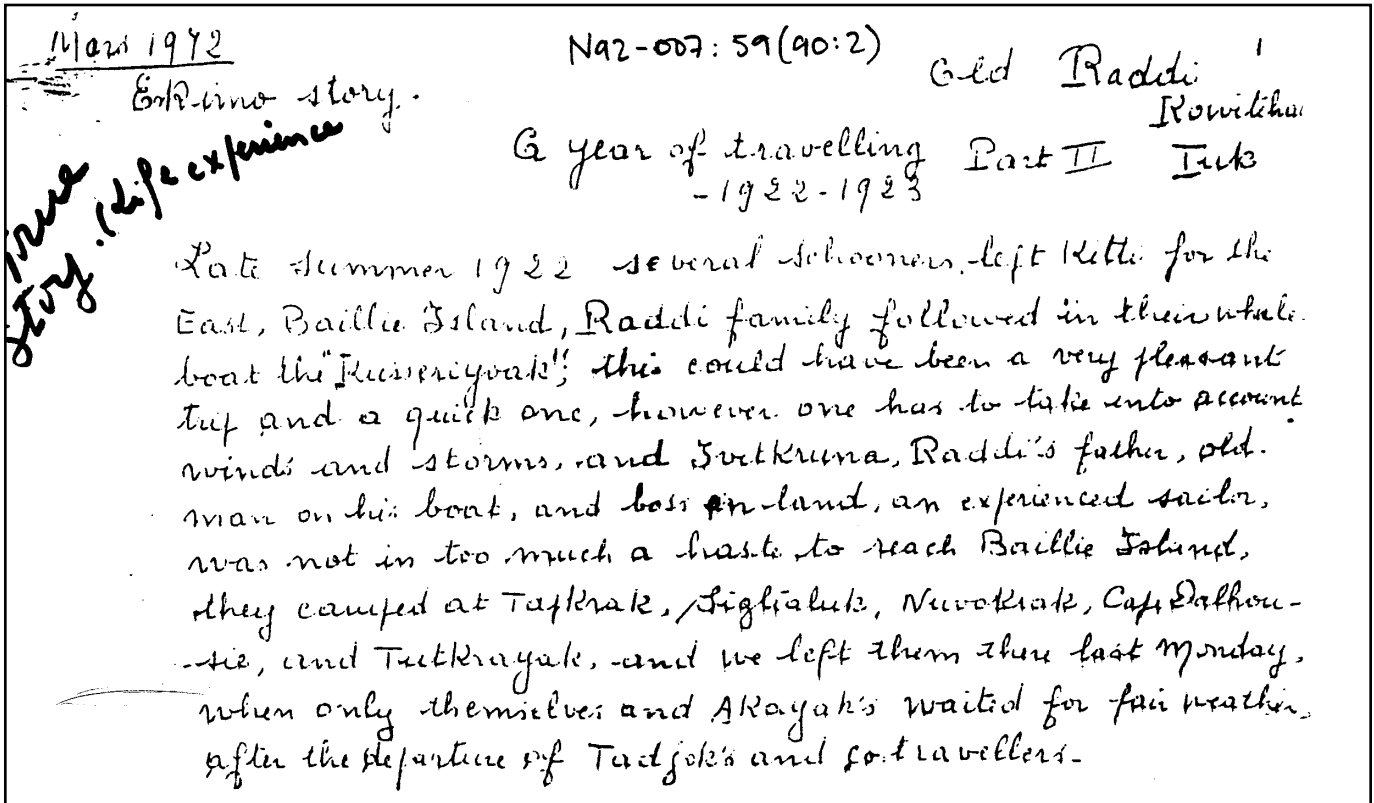 Mars 1972
N92-007:59(90:2)
Old Raddi 1
Eskimo story.
Kowitcha
A year of travelling Part II Tuk
- 1922-1923
True story. (Life experience
Late summer 1922 several schooners, left Kitti for the
East, Baillie Island, Raddi family followed in their whale
boat the "Kusseriyoak"; this could have been a very pleasant
trip and a quick one, however one has to take into account
winds and storms, and Ivitkruna, Raddi's father, old
man on his boat, and boss on land, an experienced sailor,
was not in too much a haste to reach Baillie Island,
they camped at Tapkrak, Siglialuk, Nuvokrak, Cape Dalhou-
-sie, and Tutkrayak, and we left them there last Monday,
when only themselves and Akayak's waited for fair weather,
after the departure of Tadjok's and co. travellers.